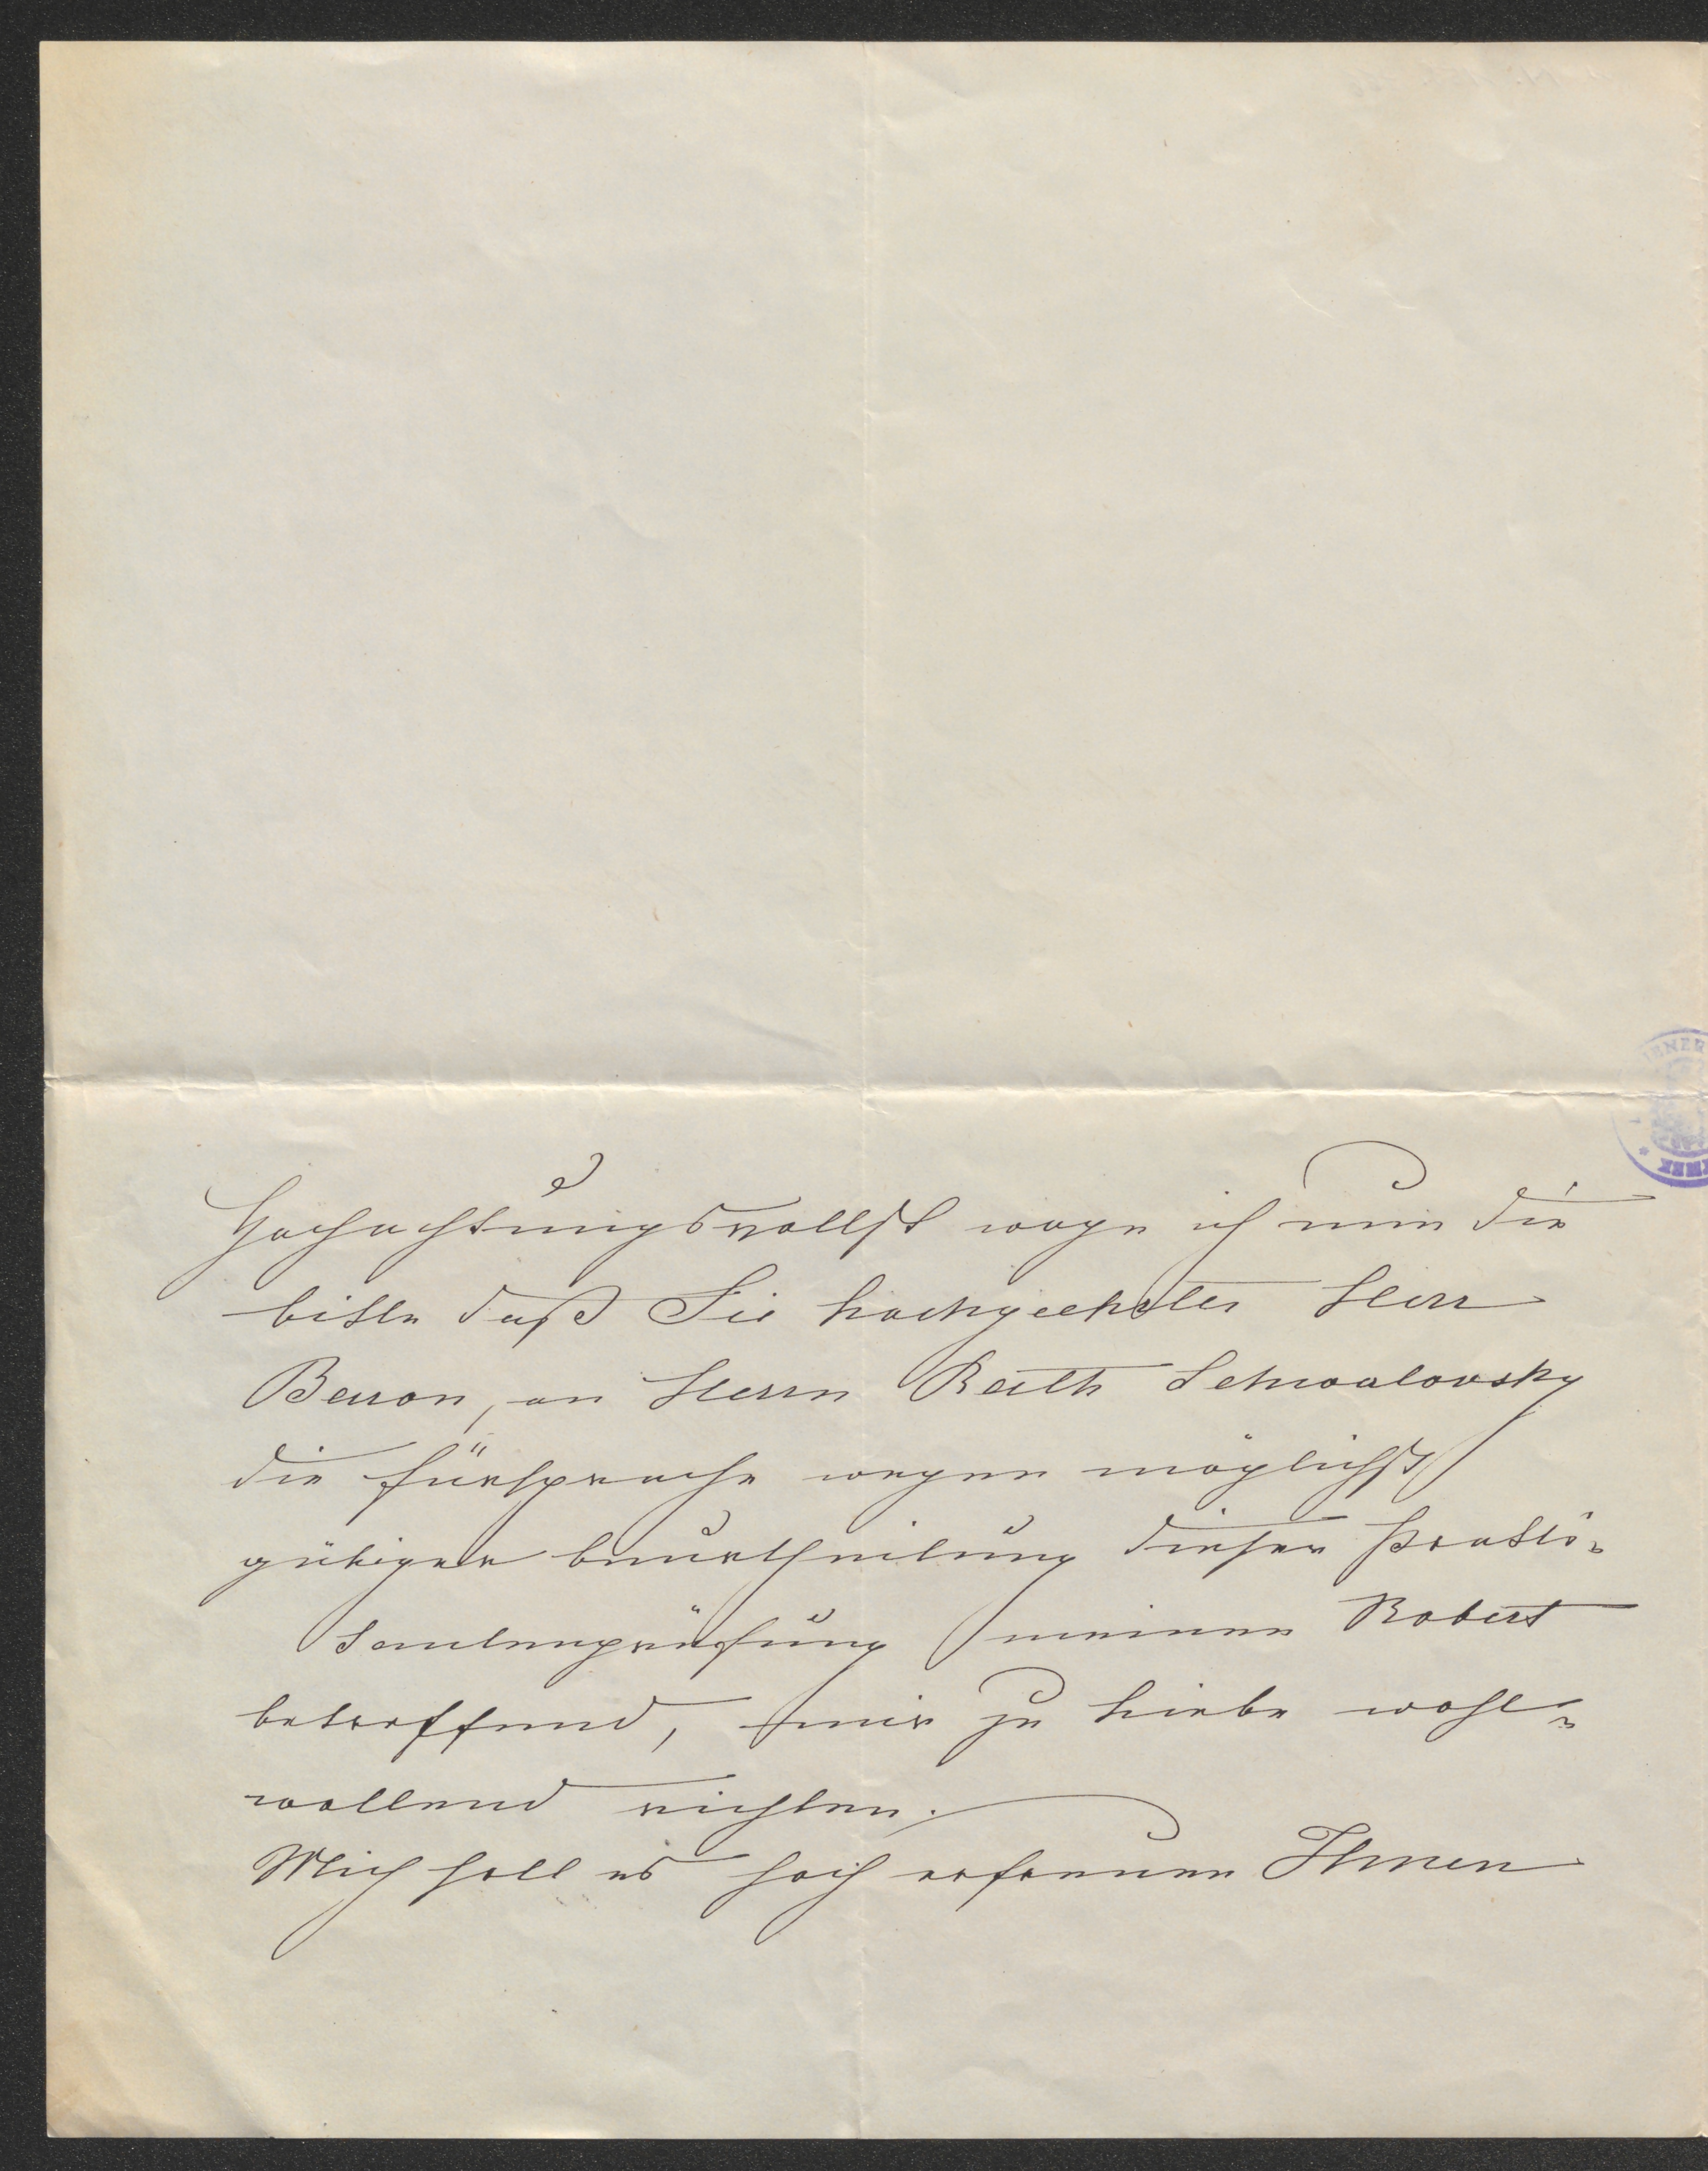 Hochachtungsvollst wage ich nun die
bitte daß Sie hochgeehrter Herr
Baron, an Herrn Rath Schwalovsky
die fürsprache wegen möglichst
gütiger beurtheilung dieser
meinen Robert
betreffend, mir zu liebe wohl=
wollend richten.
Mich soll es hoch erfreuen Ihnen